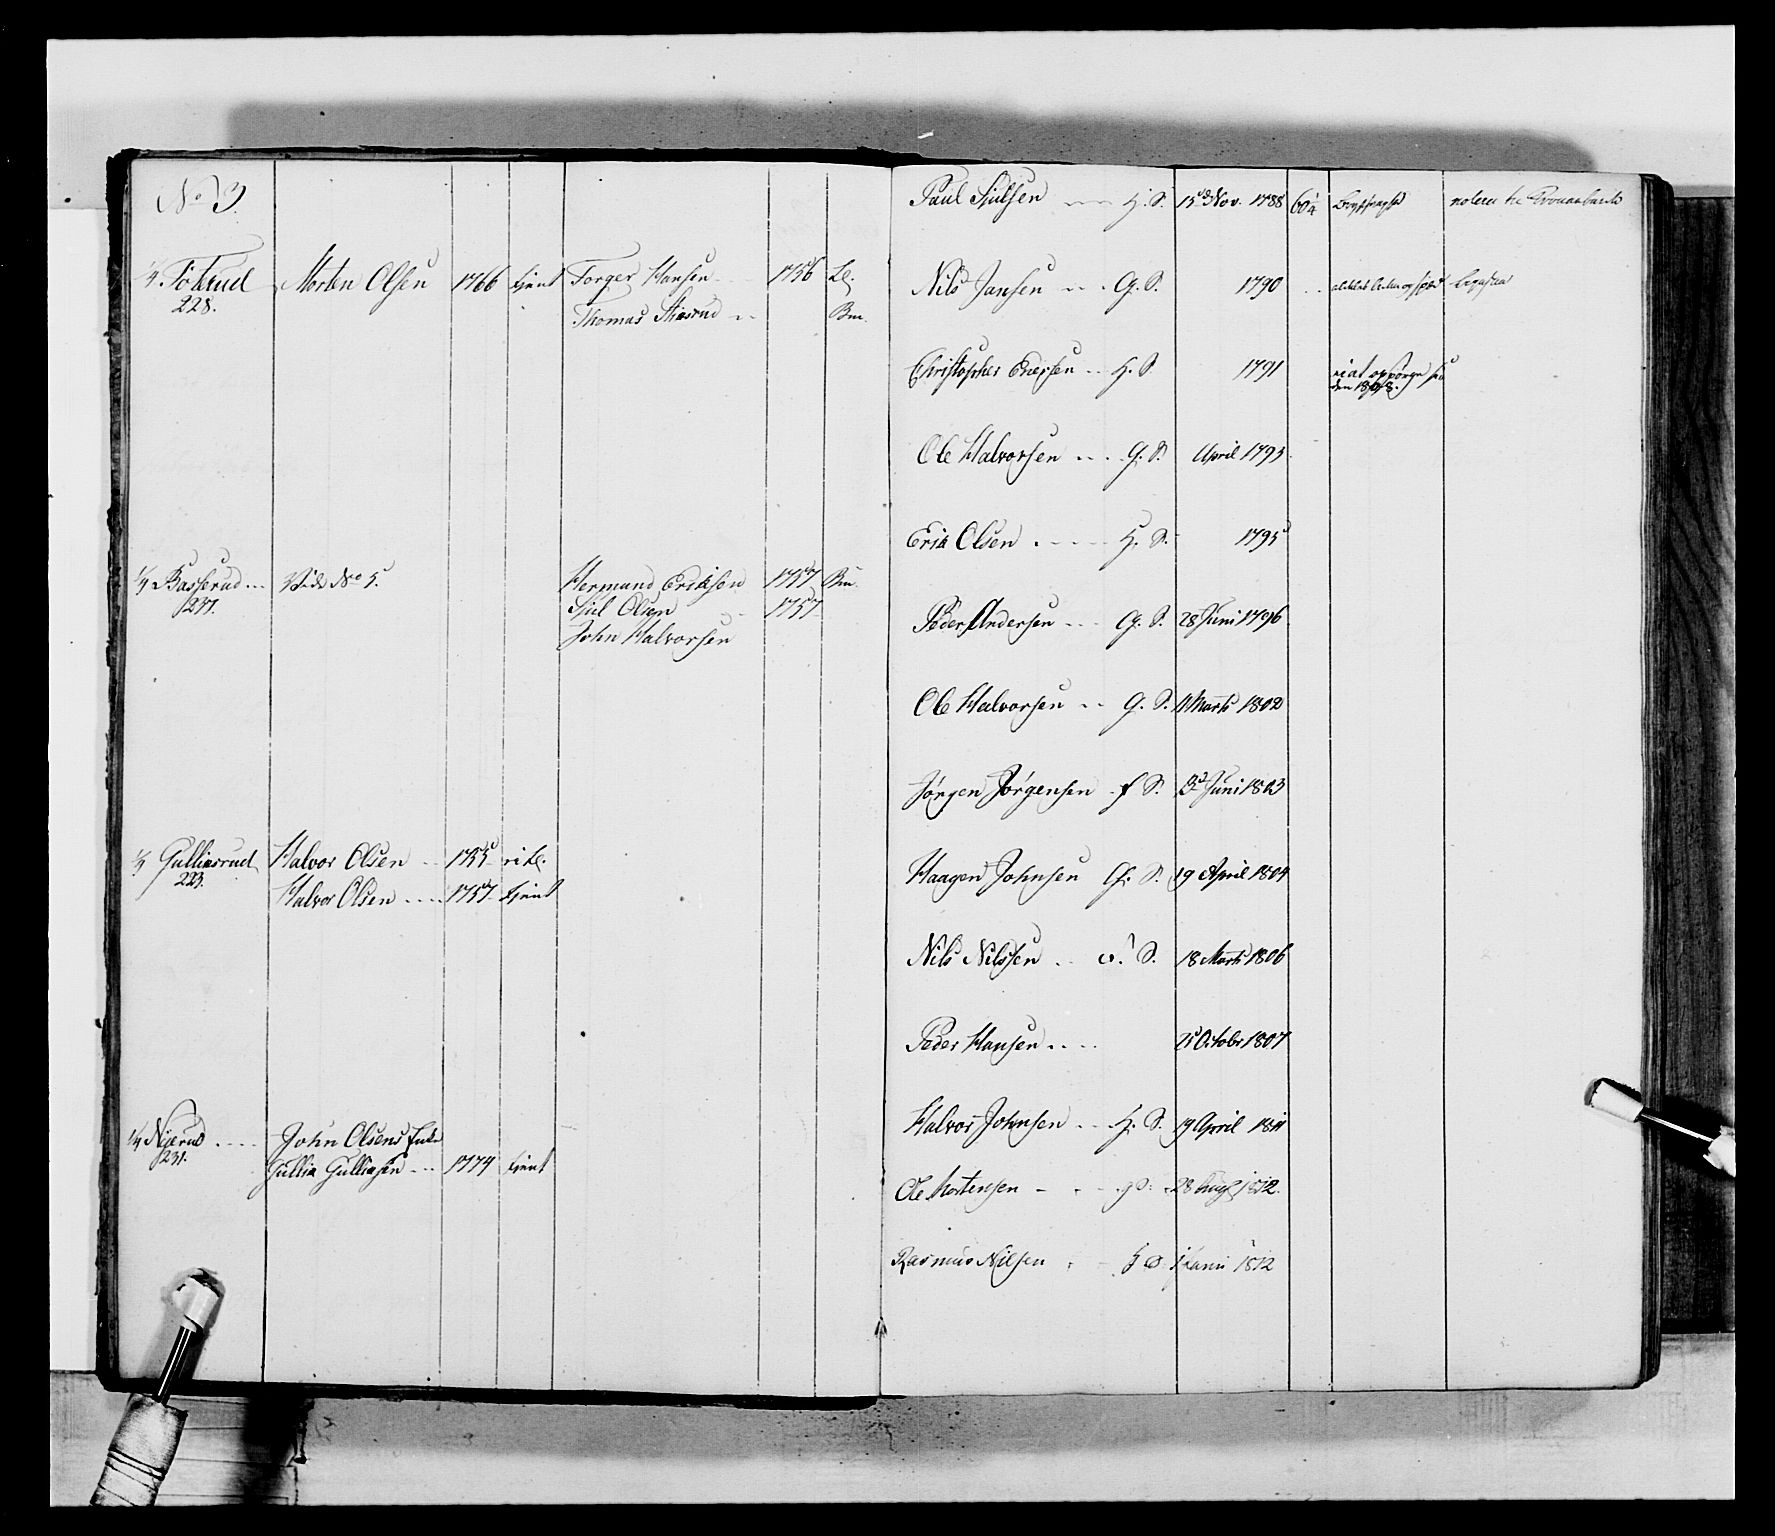 No 3.
1/4 Föterud Morten Olsen 1766 tjent Torger Hansen 1756 Le.
228. Thomas Skiesrud Bm.
1/4 Basserud Vide No 5. Hermand Erichsen 1757 Bm.
237. Siul Olsen 1757
John Halvorsen
1/3 Gulliksrud Halvor Olsen 1755
223. Halvor Olsen 1757 tjent
1/4 John Olsens Enke
231. Gullik Gulliksen 1774 tjent
Paul Siulsen H. S. 15de Nov. 1788 60 1/4
Nils Jansen G. S. 1790
Christopher H. S. 1791
Ole Halvorsen G. S. April 1793
Erik Olsen H. S. 1795
Peder Andersen G. S. 28 Juni 1796
Ole Halvorsen G. S. 11 Marts 1802
Jørgen Jørgensen f S. Juni 1803
Haagen Johnsen G. S. 19 April 1804
Nils Nilssen S. 18 Marts 1806
Peder Hansen 25 Octobr 1807
Halvor Johnsen H. S. 19 April 1811
Ole Mortensen g S. 28 Augl 1812.
Rasmus Nilsen 1812